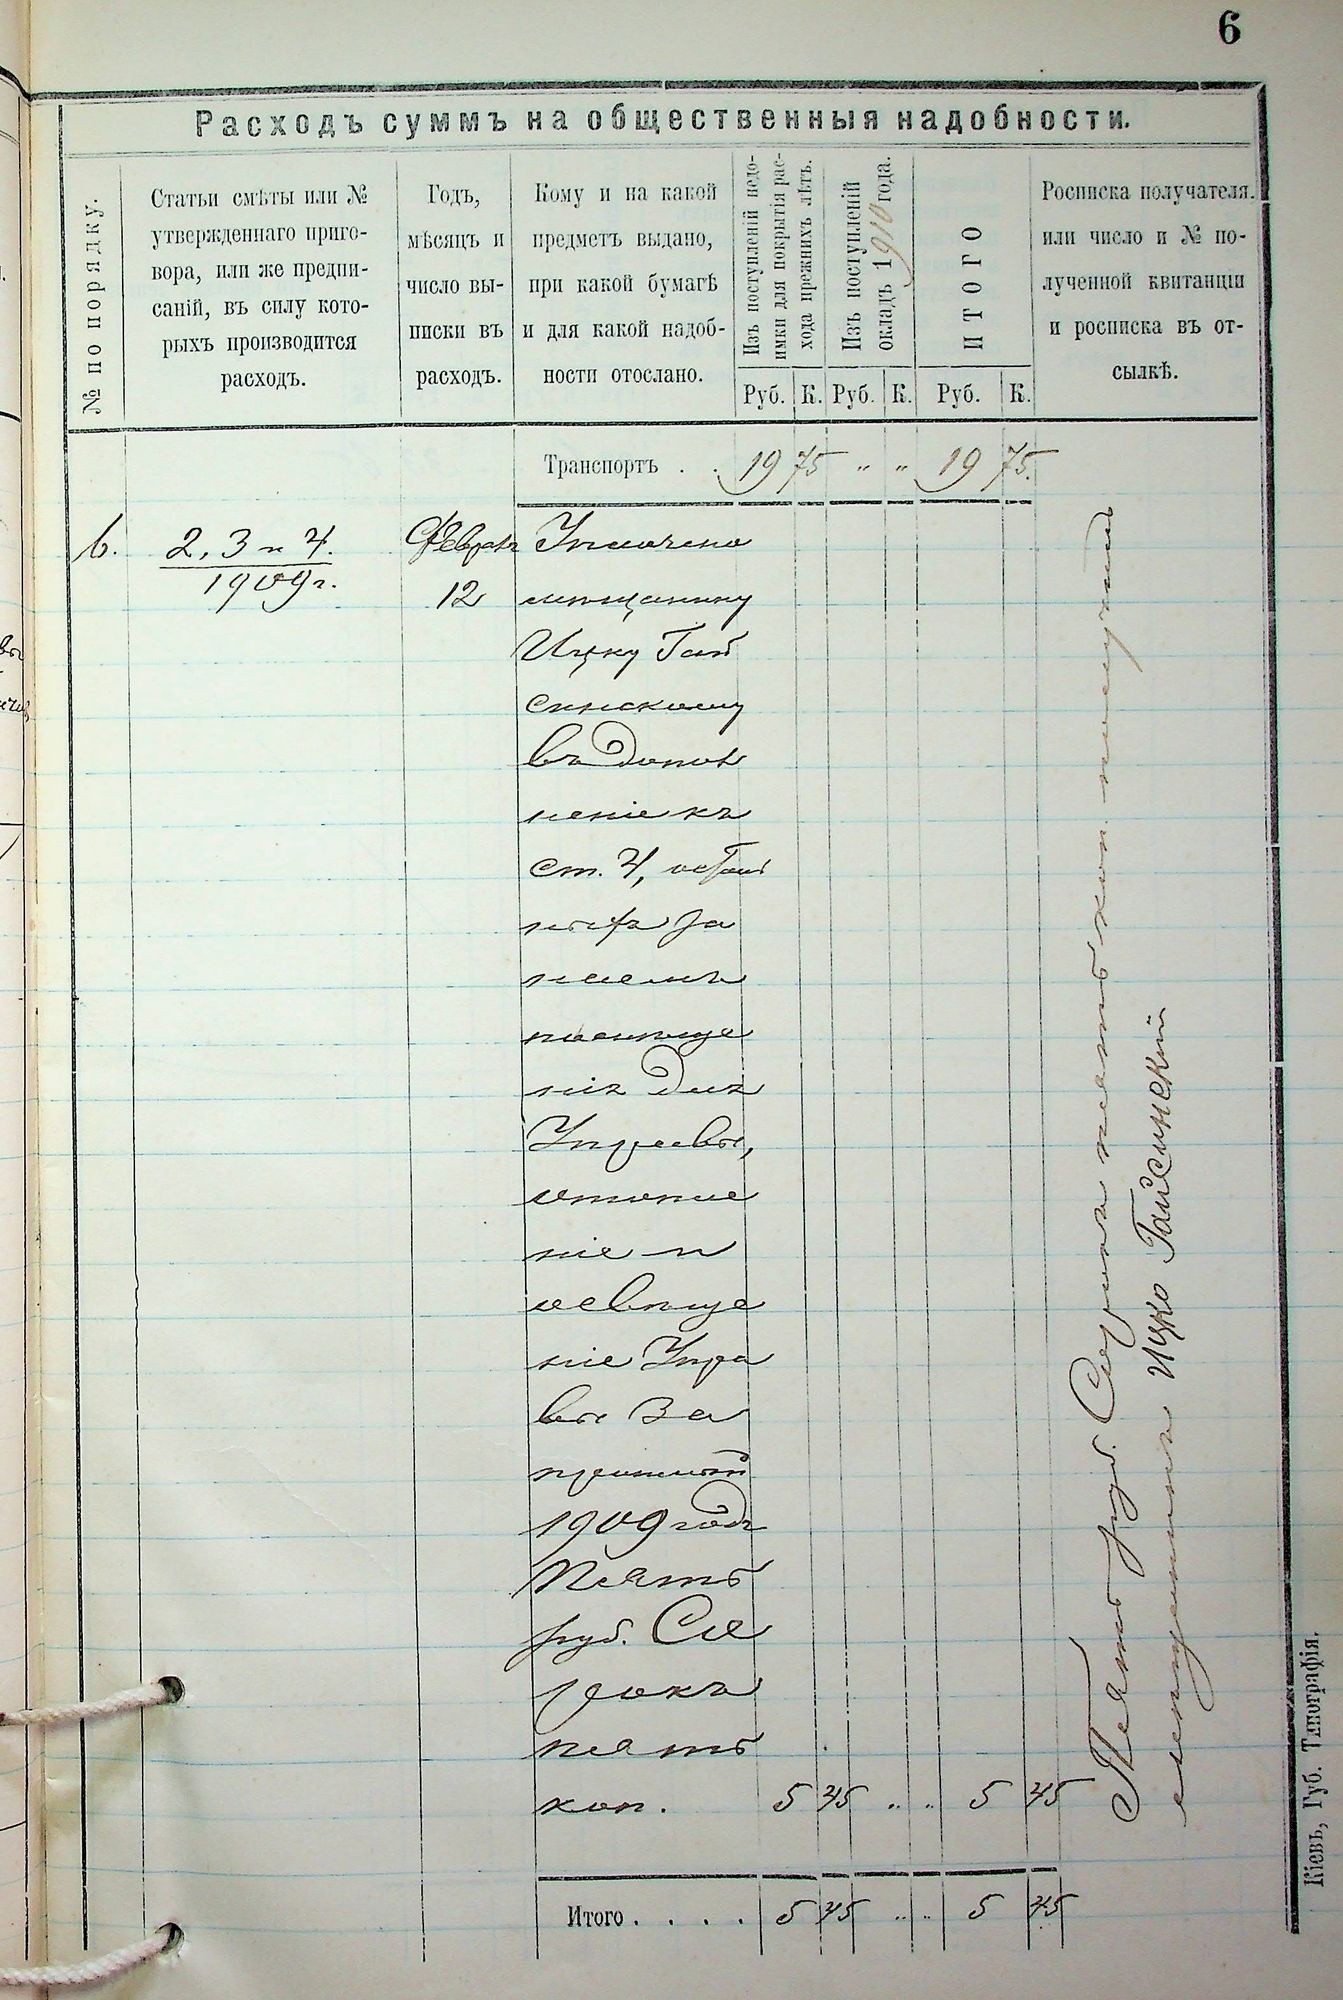 6
Расходъ суммъ на общественныя надобности.
№ по порядку.
Статьи смѣты или №
утвержденнаго приго-
вора, или же предпи-
саній, въ силу кото-
рыхъ производится
расходъ.
Годъ,
мѣсяцъ и
число вы-
писки въ
расходъ.
Кому и на какой
предметъ выдано,
при какой бумагѣ
и для какой надоб-
ности отослано.
Изъ поступленій недо-
имки для покрытія рас-
хода прежнихъ лѣтъ.
Изъ поступленій
окладъ 1910 года.
ИТОГО
Росписка получателя.
или число и № по-
лученной квитанціи
и росписка въ от-
сылкѣ.
Руб. К. Руб. К. Руб. К.
Транспортъ . . 19 75 " " 19 75.
6. 2, 3 и 4. Февраля Уплочено
1909 г. 12 мѣщанину
Ицку Гай
синскому
въ допол
неніе къ
ст. 4, осталь
ныхъ за
наемъ
помѣще
нія для
Управы,
отопле
ніе и
освѣще
ніе Упра
вы за
прошлый
1909 годъ
Пять
руб. Со
рокъ
пять
коп. 5 45 " " 5 45
Итого . . . . 5 45 " " 5 45
Пять руб. Сорокъ пять коп. получилъ
мѣщанинъ Ицко Гайсинскій
Кіевъ, Губ. Типографія.